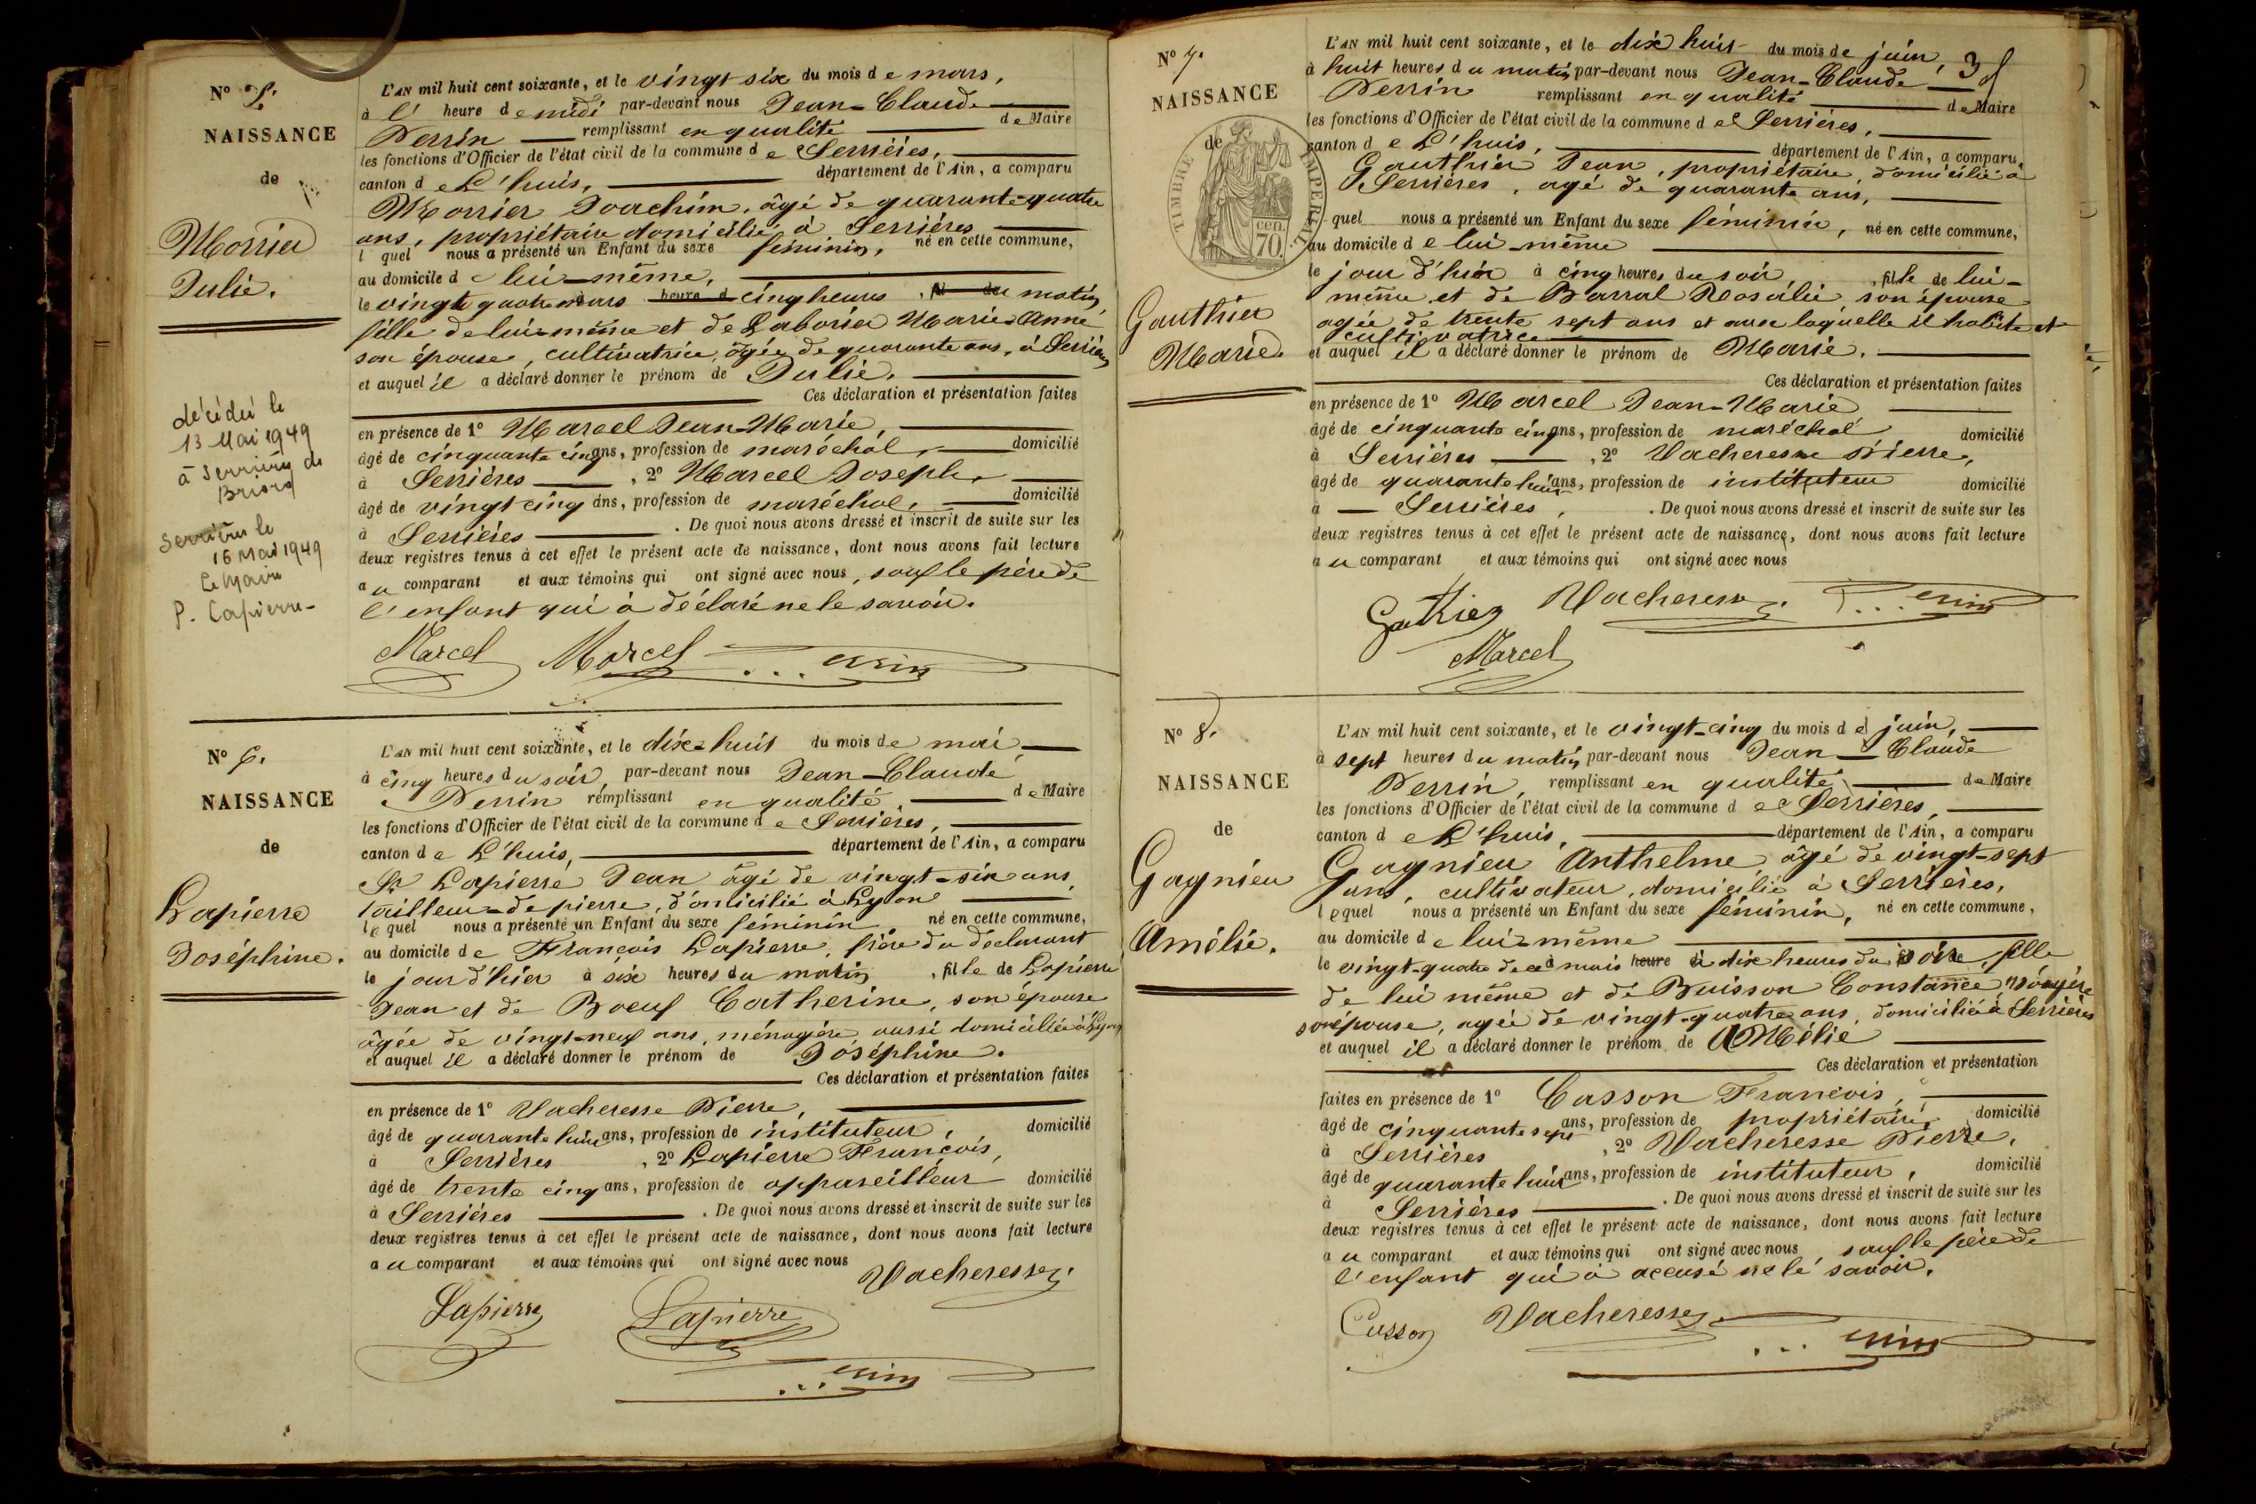 N° 5.
NAISSANCE
de
Morrier
Julie.
décédée le
13 Mai 1949
à Serrières de
Briord
Serrières le
16 Mai 1949
Le Maire
P. Lapierre
L'AN mil huit cent soixante, et le vingt six du mois de mars,
à l' heure de midi par-devant nous Jean-Claude
Perrin remplissant en qualité de Maire
les fonctions d'Officier de l'état civil de la commune de Serrières,
canton de L'huis, département de l'Ain, a comparu
Morrier Joachim, âgé de quarante-quatre
ans, propriétaire domicilié à Serrières
lequel nous a présenté un Enfant du sexe féminin, né en cette commune,
au domicile de lui-même,
le vingt quatre mars à heure d cinq heures, fil de du matin
fille de lui-même et de Laborier Marie-Anne
son épouse, cultivatrice, âgée de quarante ans, à Serrières
et auquel il a déclaré donner le prénom de Julie.
Ces déclaration et présentation faites
en présence de 1° Marcel Jean-Marie,
âgé de cinquante cinq ans, profession de maréchal, domicilié
à Serrières, 2° Marcel Joseph,
âgé de vingt cinq ans, profession de maréchal, domicilié
à Serrières. De quoi nous avons dressé et inscrit de suite sur les
deux registres tenus à cet effet le présent acte de naissance, dont nous avons fait lecture
au comparant et aux témoins qui ont signé avec nous, sauf le père de
l'enfant qui à déclaré ne le savoir.
Marcel Marcel P...errin
N° 6.
NAISSANCE
de
Lapierre
Joséphine.
L'AN mil huit cent soixante, et le dix-huit du mois de mai
à cinq heures du soir par-devant nous Jean-Claude
Perrin remplissant en qualité, de Maire
les fonctions d'Officier de l'état civil de la commune de Serrières,
canton de L'huis, département de l'Ain, a comparu
Sr Lapierre Jean âgé de vingt-six ans,
tailleur-de pierre, domicilié à Lyon
lequel nous a présenté un Enfant du sexe féminin né en cette commune,
au domicile de François Lapierre, frère du déclarant
le jour d'hier à six heures du matin, fille de Lapierre
Jean et de Boeuf Catherine, son épouse
âgée de vingt-neuf ans, ménagère, aussi domiciliée à Lyon
et auquel il a déclaré donner le prénom de Joséphine.
Ces déclaration et présentation faites
en présence de 1° Vacheresse Pierre,
âgé de quarante huit ans, profession de instituteur, domicilié
à Serrières, 2° Lapierre François,
âgé de trente cinq ans, profession de appareilleur domicilié
à Serrières. De quoi nous avons dressé et inscrit de suite sur les
deux registres tenus à cet effet le présent acte de naissance, dont nous avons fait lecture
au comparant et aux témoins qui ont signé avec nous
Vacheresse
Lapierre Lapierre
P...errin
3
N° 7.
NAISSANCE
de
TIMBRE IMPÉRIAL
70 cen.
Gauthier
Marie.
L'AN mil huit cent soixante, et le dix huit du mois de juin,
à huit heures du matin par-devant nous Jean-Claude
Perrin remplissant en qualité de Maire
les fonctions d'Officier de l'état civil de la commune de Serrières,
canton de L'huis, département de l'Ain, a comparu
Gauthier Jean, propriétaire, domicilié à
Serrières, agé de quarante ans,
quel nous a présenté un Enfant du sexe féminin, né en cette commune,
au domicile de lui-même
le jour d'hier à cinq heures du soir, fille de lui-
même et de Barral Rosalie son épouse
agée de trente sept ans et avec laquelle il habite et
cultivatrice
et auquel il a déclaré donner le prénom de Marie.
Ces déclaration et présentation faites
en présence de 1° Marcel Jean-Marie
âgé de cinquante cinq ans, profession de maréchal domicilié
à Serrières, 2° Vacheresse Pierre,
âgé de quarante huit ans, profession de instituteur domicilié
à Serrières,. De quoi nous avons dressé et inscrit de suite sur les
deux registres tenus à cet effet le présent acte de naissance, dont nous avons fait lecture
au comparant et aux témoins qui ont signé avec nous
Gauthier Vacheresse P...errin
Marcel
N° 8.
NAISSANCE
de
Gagnieu
Amélie.
L'AN mil huit cent soixante, et le vingt-cinq du mois de juin,
à sept heures du matin par-devant nous Jean-Claude
Perrin, remplissant en qualité de Maire
les fonctions d'Officier de l'état civil de la commune de Serrières,
canton de L'huis, département de l'Ain, a comparu
Gagnieu Anthelme âgé de vingt-sept
ans, cultivateur, domicilié à Serrières,
lequel nous a présenté un Enfant du sexe féminin, né en cette commune,
au domicile de lui-même
le vingt-quatre de ce mois heure à dix heures du soir, fille
de lui même et de Buisson Constance ménagère
son épouse, agée de vingt-quatre ans, domiciliée à Serrières
et auquel il a déclaré donner le prénom de AMélie
Ces déclaration et présentation
faites en présence de 1° Casson François,
âgé de cinquante sept ans, profession de propriétaire, domicilié
à Serrières, 2° Vacheresse Pierre,
âgé de quarante huit ans, profession de instituteur, domicilié
à Serrières. De quoi nous avons dressé et inscrit de suite sur les
deux registres tenus à cet effet le présent acte de naissance, dont nous avons fait lecture
au comparant et aux témoins qui ont signé avec nous, sauf le père de
l'enfant qui à accusé ne le savoir.
Cusson Vacheresse P...errin